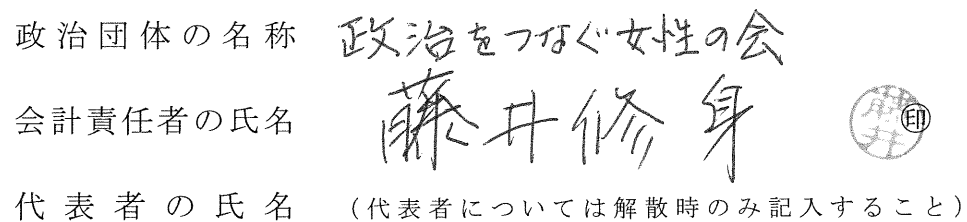 政治団体の名称 政治をつなぐ女性の会
会計責任者の氏名 藤井修身 藤井 ㊞
代表者の氏名 （代表者については解散時のみ記入すること）